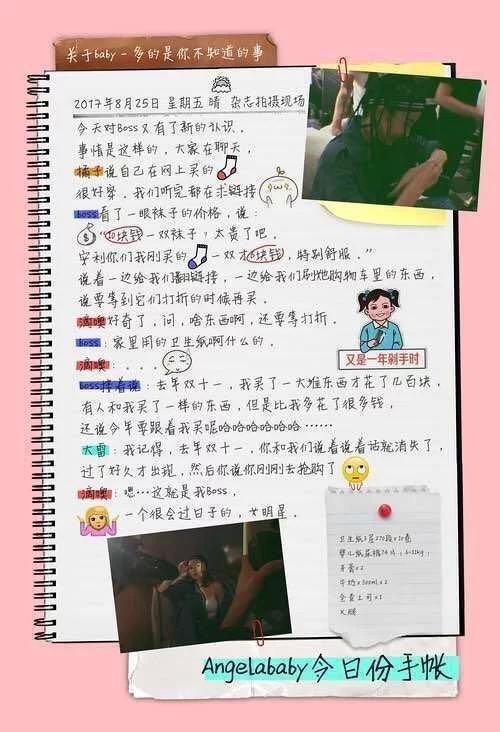 关于baby-多的是你不知道的事
2017年8月25日 星期五 晴 杂志拍摄现场
今天对Boss又有了新的认识。
事情是这样的,大家在聊天,
橘子说自己在网上买的
很好穿。我们听完都在求链接
boss看了一眼袜子的价格,说:
“10块钱一双袜子!太贵了吧。
安利你们我刚买的一双才5块钱,特别舒服。”
说着一边给我们翻链接,一边给我们刷她购物车里的东西,
说要等到它们打折的时候再买。
滴噢好奇了,问,啥东西啊,还要等打折。
boss:家里用的卫生纸啊什么的。
滴噢:....
boss接着说:去年双十一,我买了一大堆东西才花了几百块,
有人和我买了一样的东西,但是比我多花了很多钱,
还说今年要跟着我买呢哈哈哈哈哈哈……
又是一年剁手时
大雷:我记得,去年双十一,你和我们说着说着话就消失了,
过了好久才出现,然后你说你刚刚去抢购了
滴噢:嗯…这就是我Boss,
一个很会过日子的,女明星。
卫生纸3层270段×20卷
牙膏×2
牛奶×300ml×2
全麦土司×1
Angelababy今日份手帐